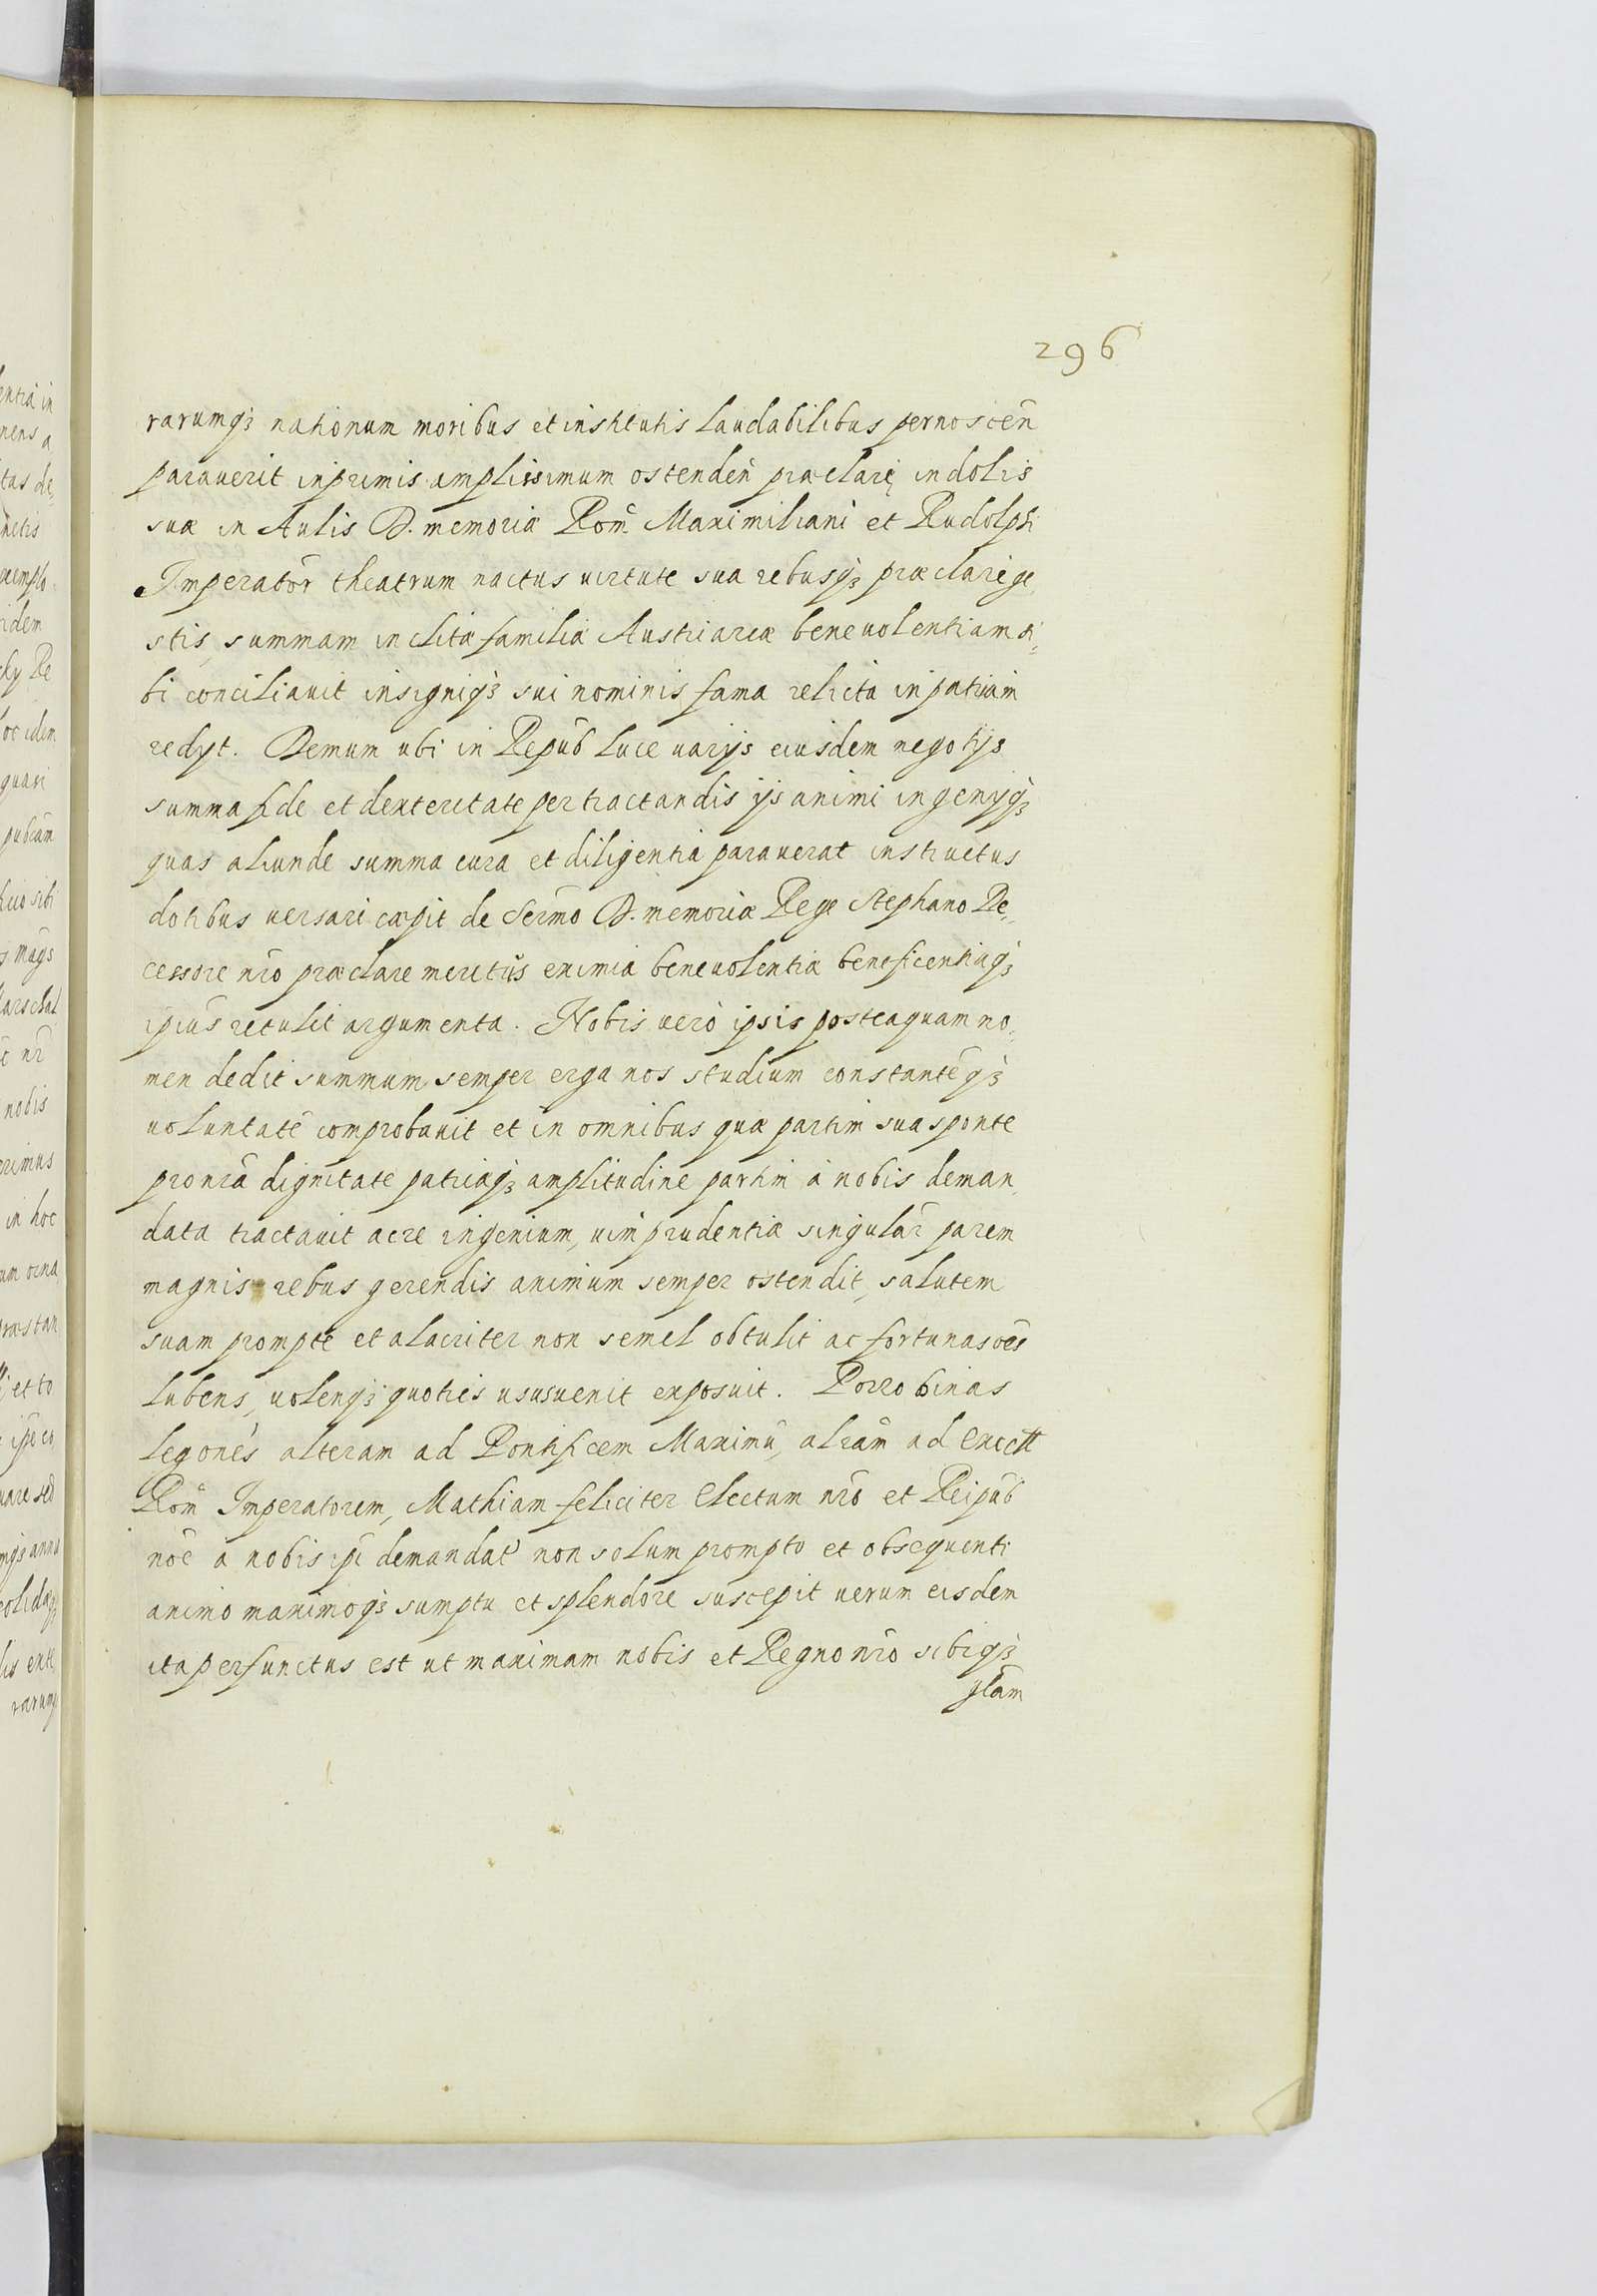 296
rarumq3 nationum moribus et institutis laudabilibus pernoscen̄
parauerit inprimis amplissimum ostenden̄ præclarę indolis
suæ in Aulis D. memoriæ Rom̄ Maximiliani et Rudolphi
Imperator̄ theatrum nactus uirtute sua rebusq3 præclare ge,
stis, summam inclitæ familiæ Austriacæ beneuolentiam si,
bi conciliauit insigniq3 sui nominis fama relicta in patriam
redyt. Demum ubi in Repub̄ luce uarijs eiusdem negotijs
summa fide et dexteritate pertractandis ijs animi ingenijq3
quas aliunde summa cura et diligentia parauerat instructus
dotibus uersari cæpit de Serm̄o D. memoriæ Rege Stephano De,
cessore nr̄o præclare meritus eximia beneuolentiæ beneficentiæq3
ipiūs retulit argumenta. Nobis uerò ipsis posteaquam no,
men dedit summum semper erga nos studium constantēq3
uoluntatē comprobauit et in omnibus quæ partim sua sponte
pro nr̄a dignitate patriæq3 amplitudine partim à nobis deman,
data tractauit acre ingenium, uim prudentiæ singular̄ parem
magnis rebus gerendis animum semper ostendit, salutem
suam prompte et alacriter non semel obtulit ac fortunas oēs
lubens, uolensq3 quoties ususuenit exposuit. Porro binas
legonēs alteram ad Pontificem Maximū, aliam ad Elect
Rom̄ Imperatorem, Mathiam feliciter Electum nr̄o et Reipub̄
noē a nobis ipī demandat non solum prompto et obsequenti
animo maximoq3 sumptu et splendore suscepit uerum eisdem
ita perfunctus est ut maximam nobis et Regno nr̄o sibiq3
glām